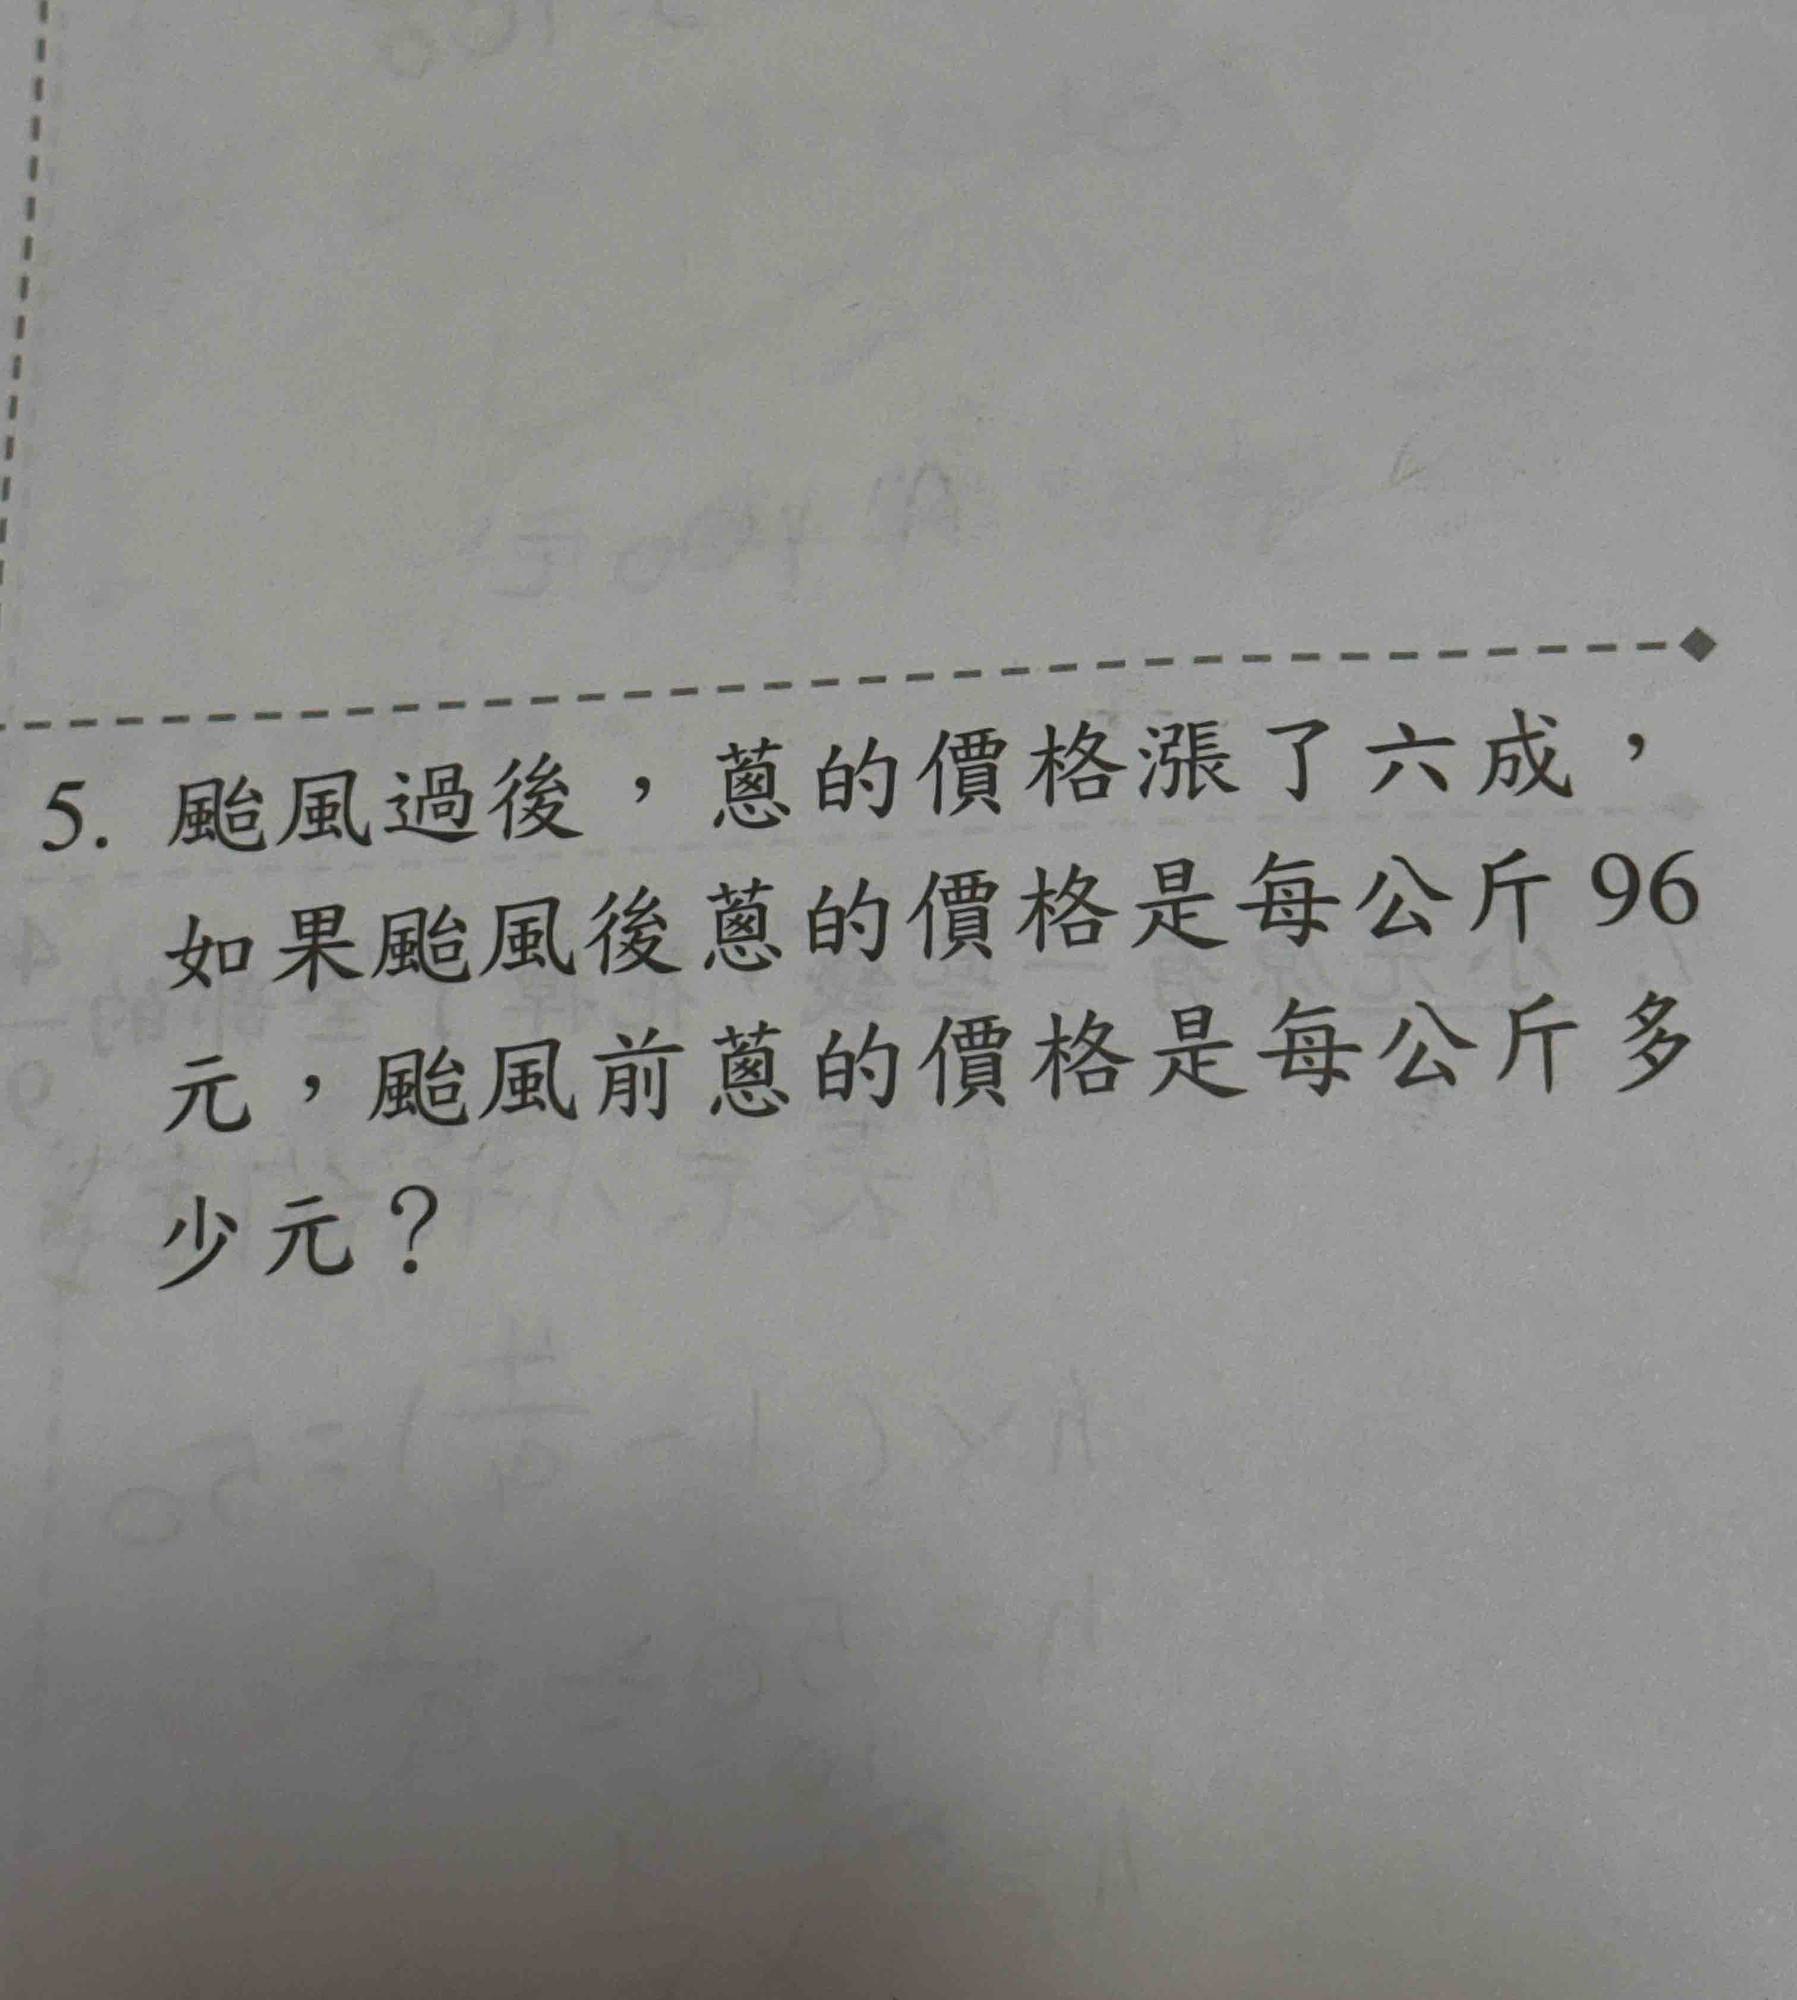 5. 颱風過後，蔥的價格漲了六成，
如果颱風後蔥的價格是每公斤 96
元，颱風前蔥的價格是每公斤多
少元？